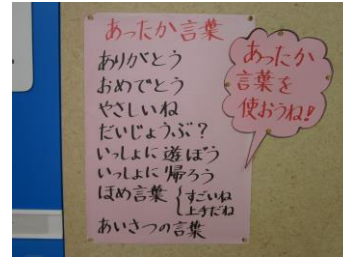 あったか言葉
ありがとう
おめでとう
やさしいね
だいじょうぶ?
いっしょに遊ぼう
いっしょに帰ろう
ほめ言葉{すごいね
上手だね
あいさつの言葉
あったか
言葉を
使おうね!